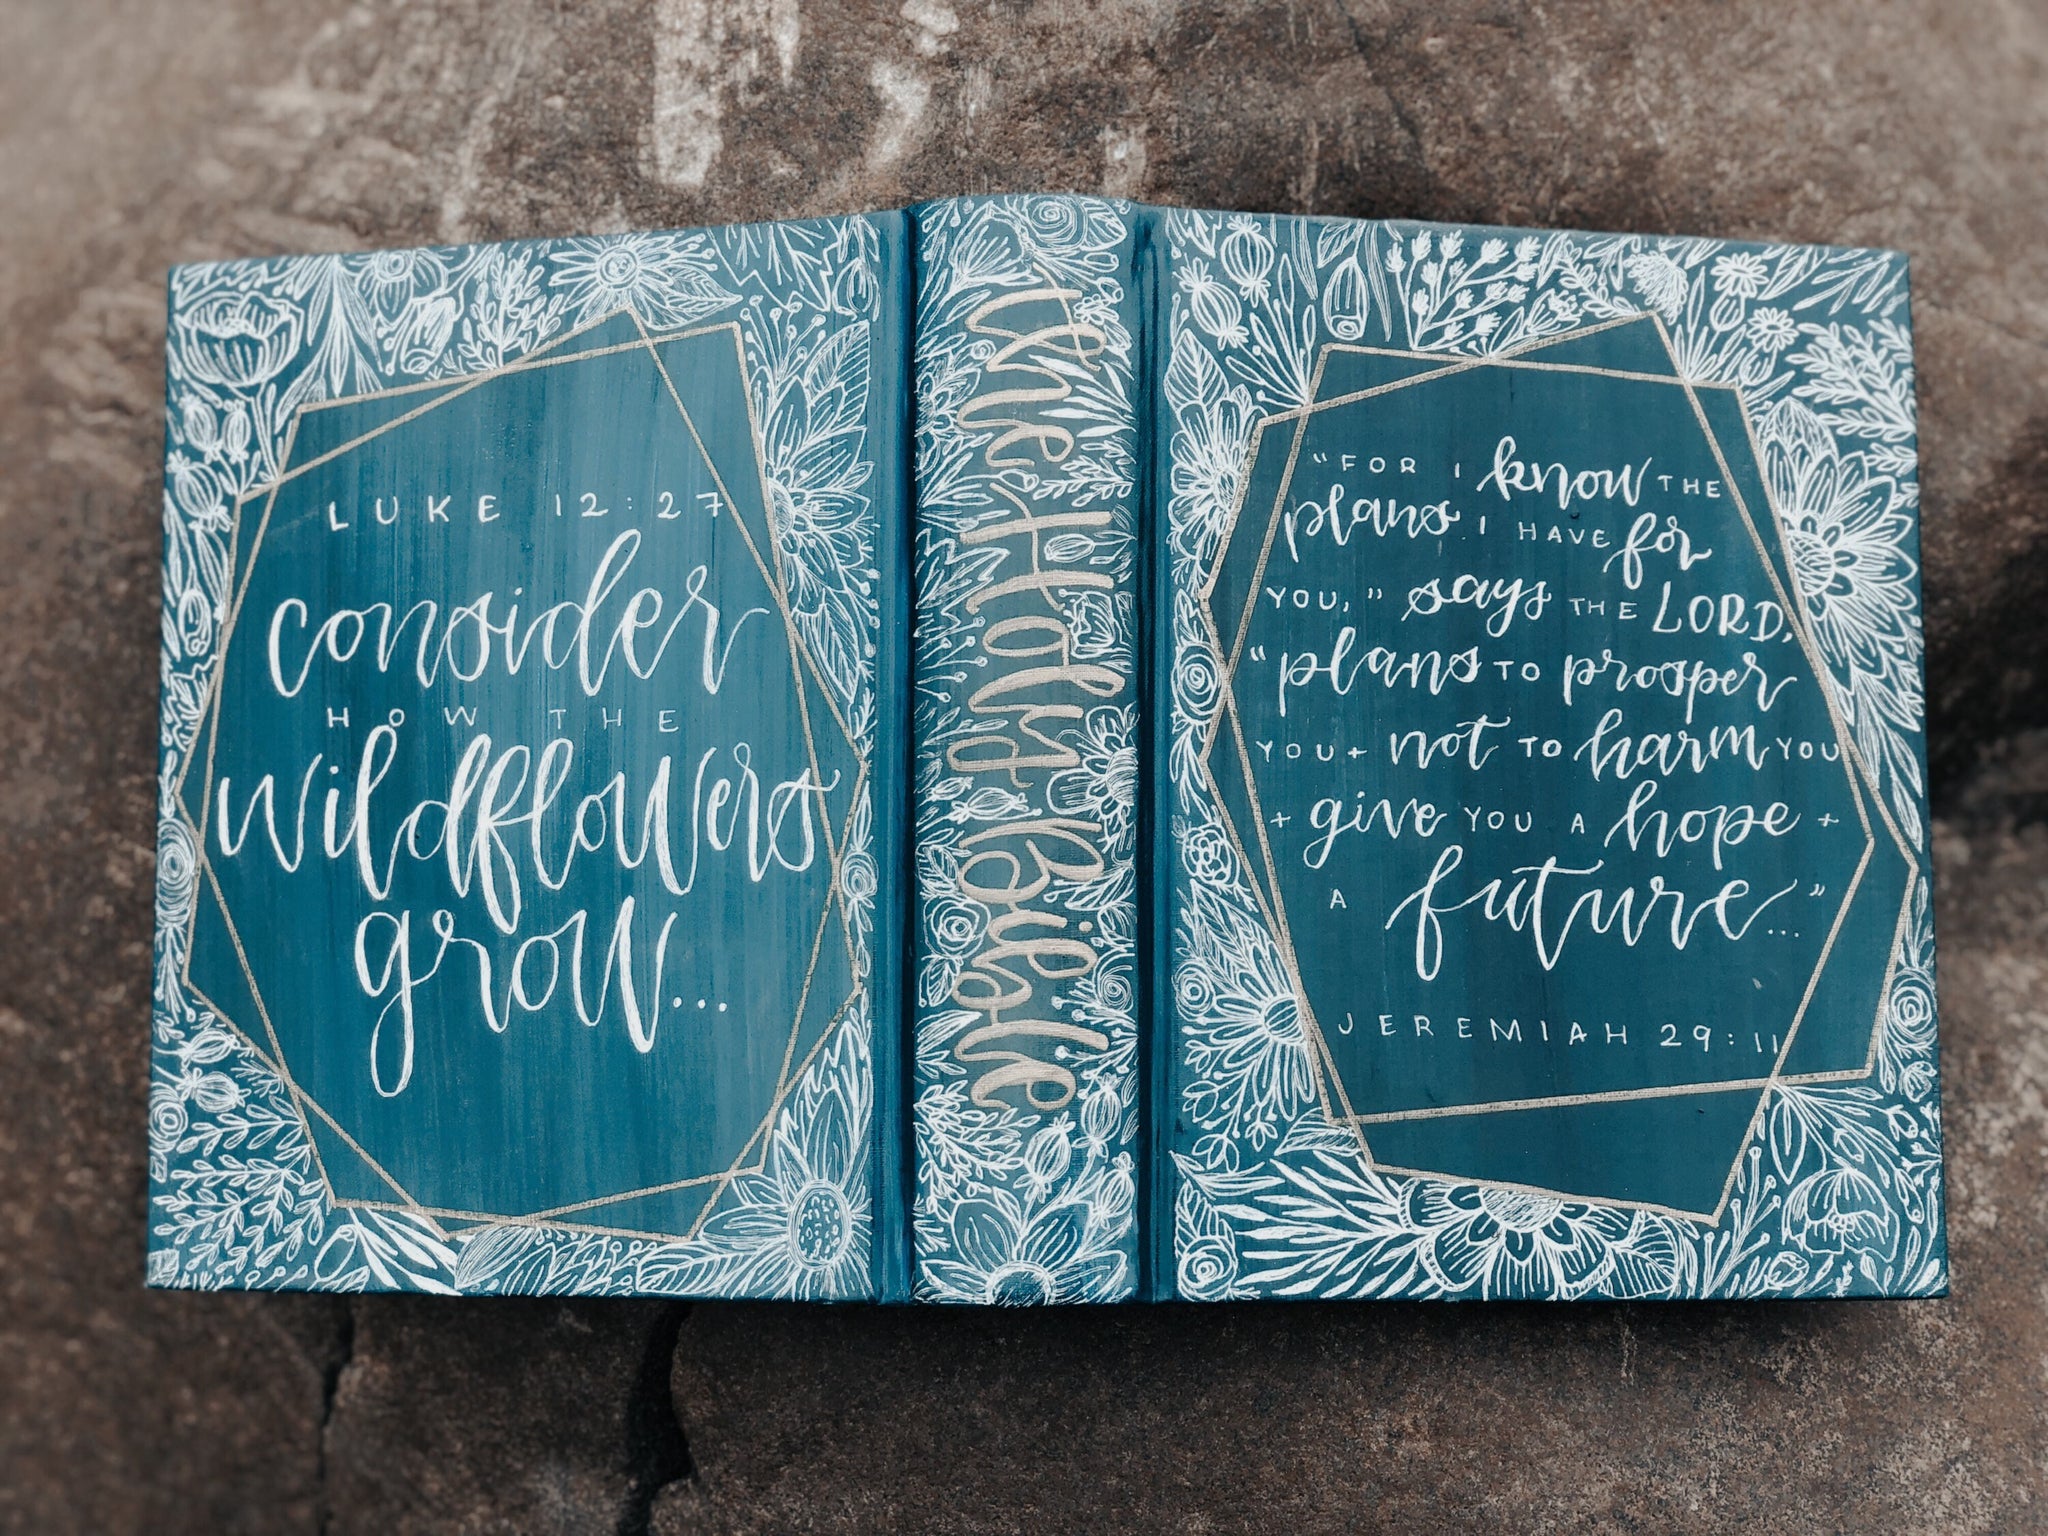 LUKE 12:27
consider
HOW THE
wildflowers
grow...
the Holy Bible
"FOR I know THE
plans I HAVE for
YOU," says THE LORD,
"plans TO prosper
YOU + not TO harm YOU
+ give YOU A hope +
A future..."
JEREMIAH 29:11